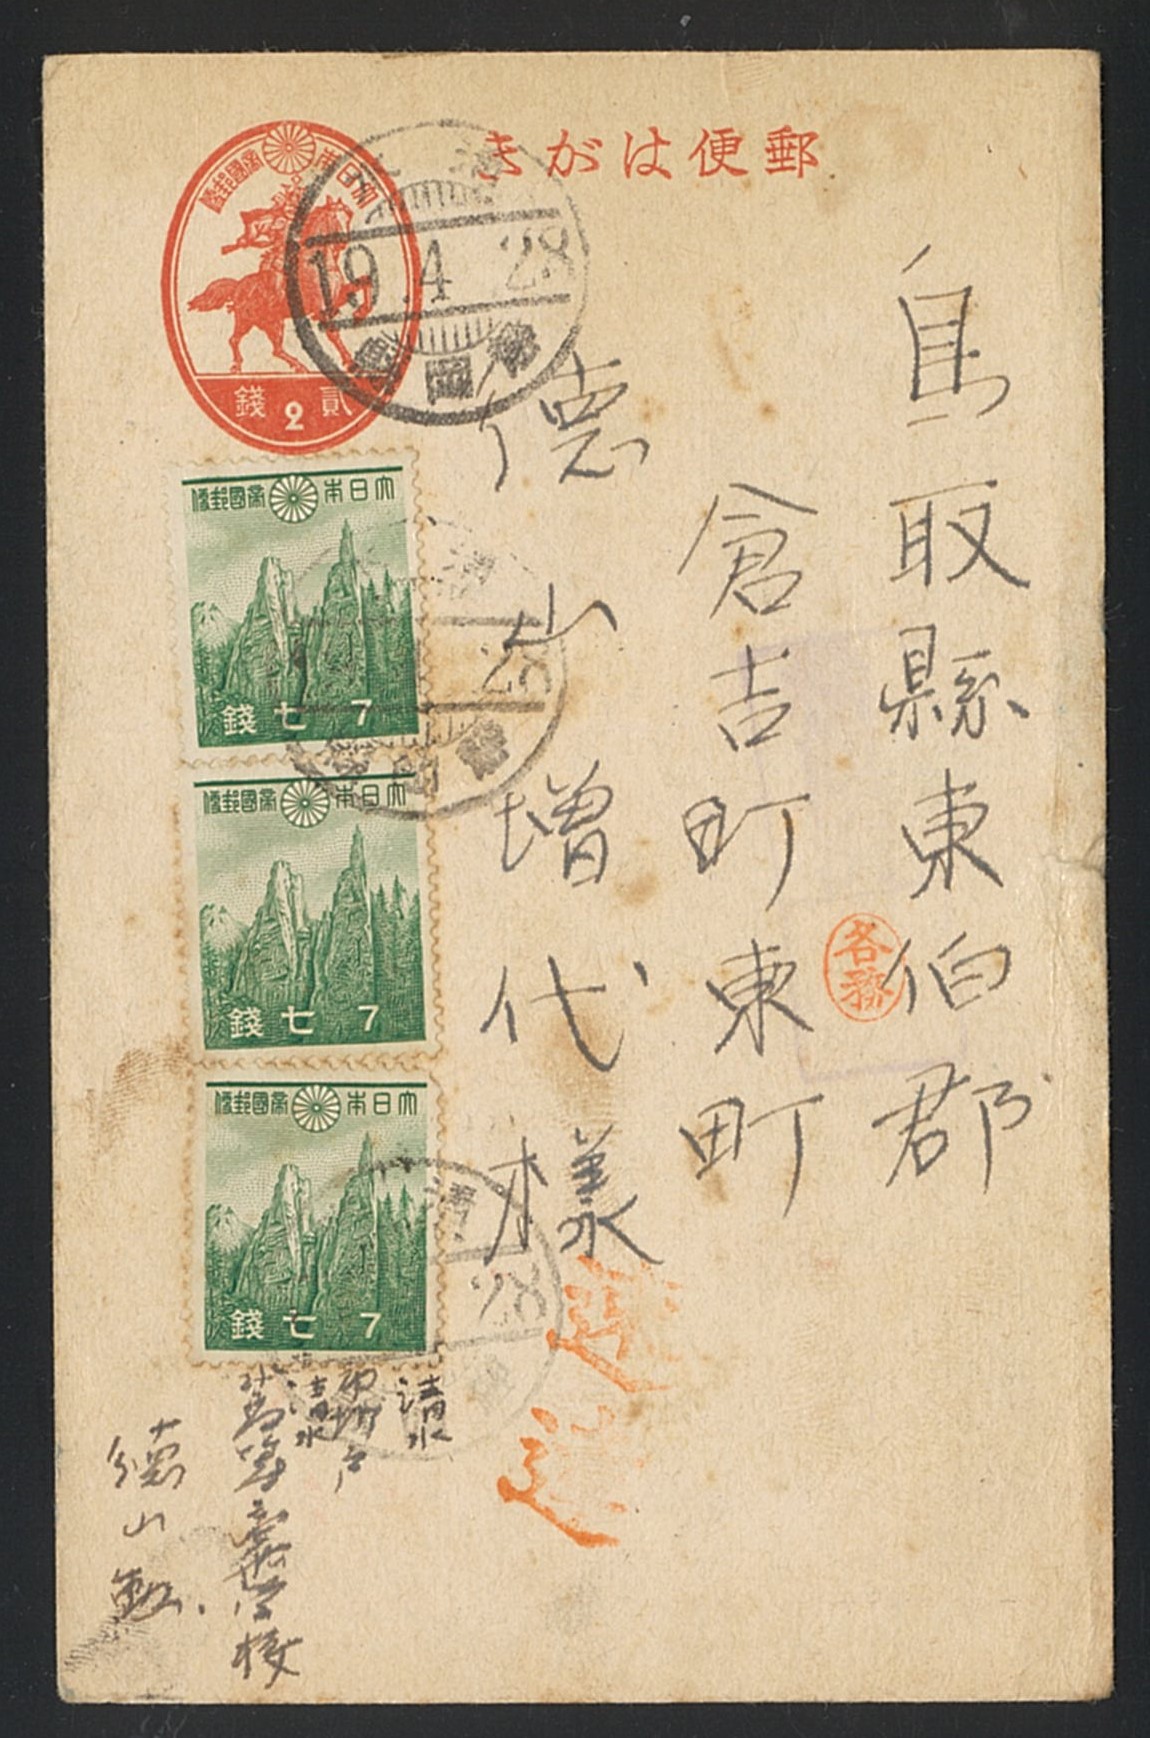 郵便はがき
大日本帝國郵便
貳2錢
19.4.28
鳥取縣東伯郡
倉吉町東町
徳山増代様
各務
大日本帝國郵便
七錢 7
大日本帝國郵便
七錢 7
大日本帝國郵便
七錢 7
28
28
清水
清水
徳山